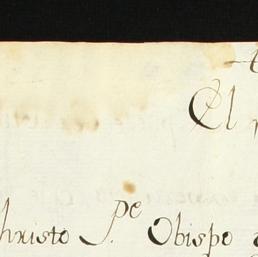 El
christo P.e Obispo